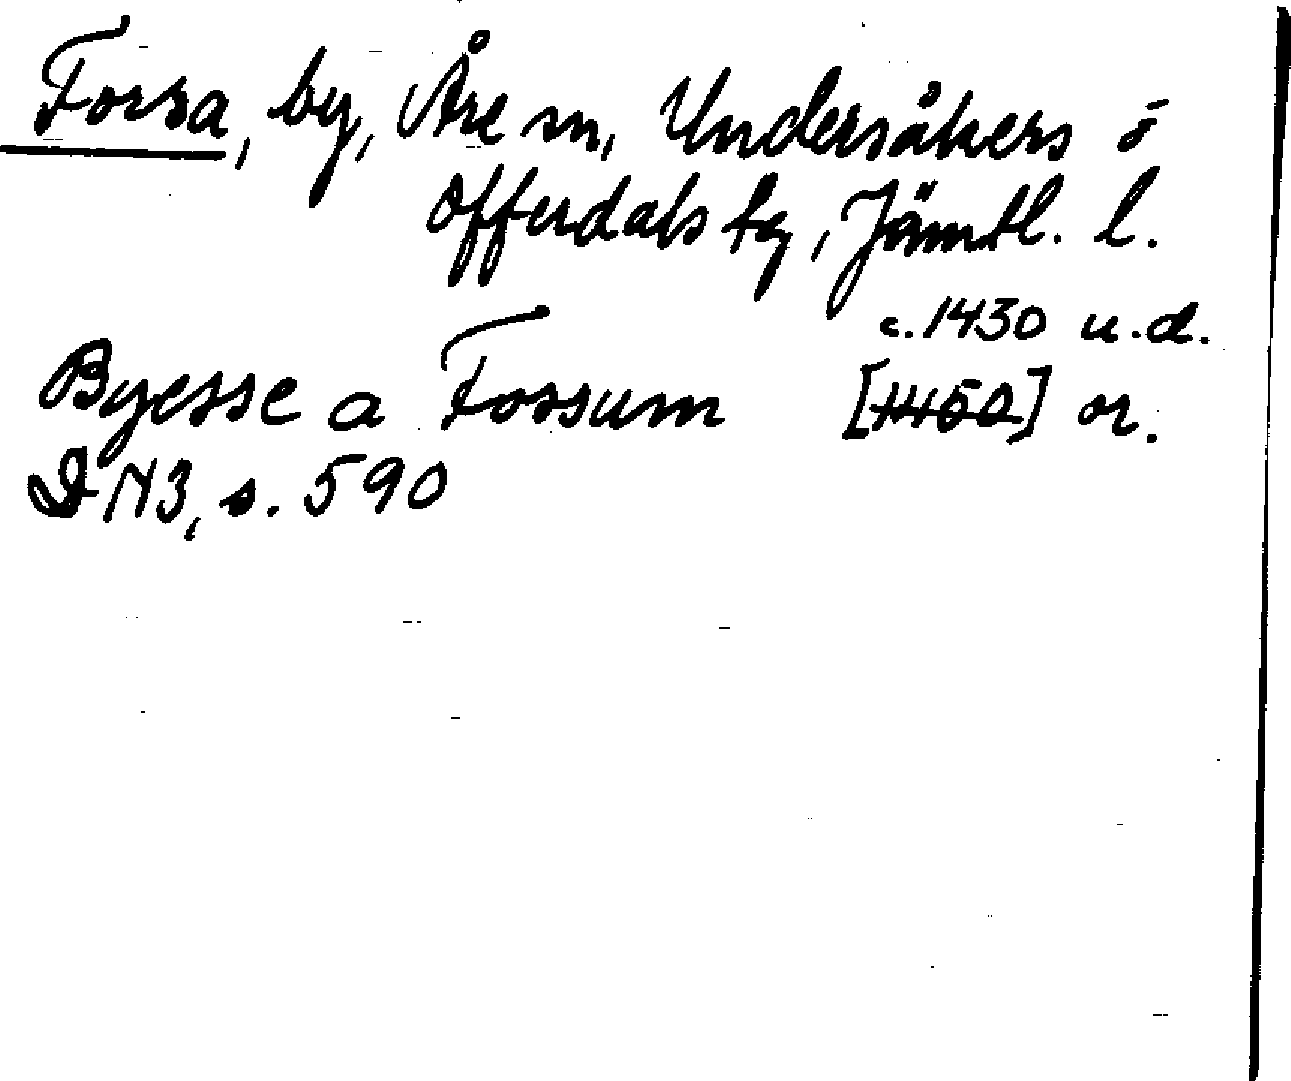 Forsa, by, Åre sn, Undersåkers o
Offerdals tg, Jämtl. l.
c. 1430 u.d.
Byesse a Fossum [1450] or.
DN3, s. 590